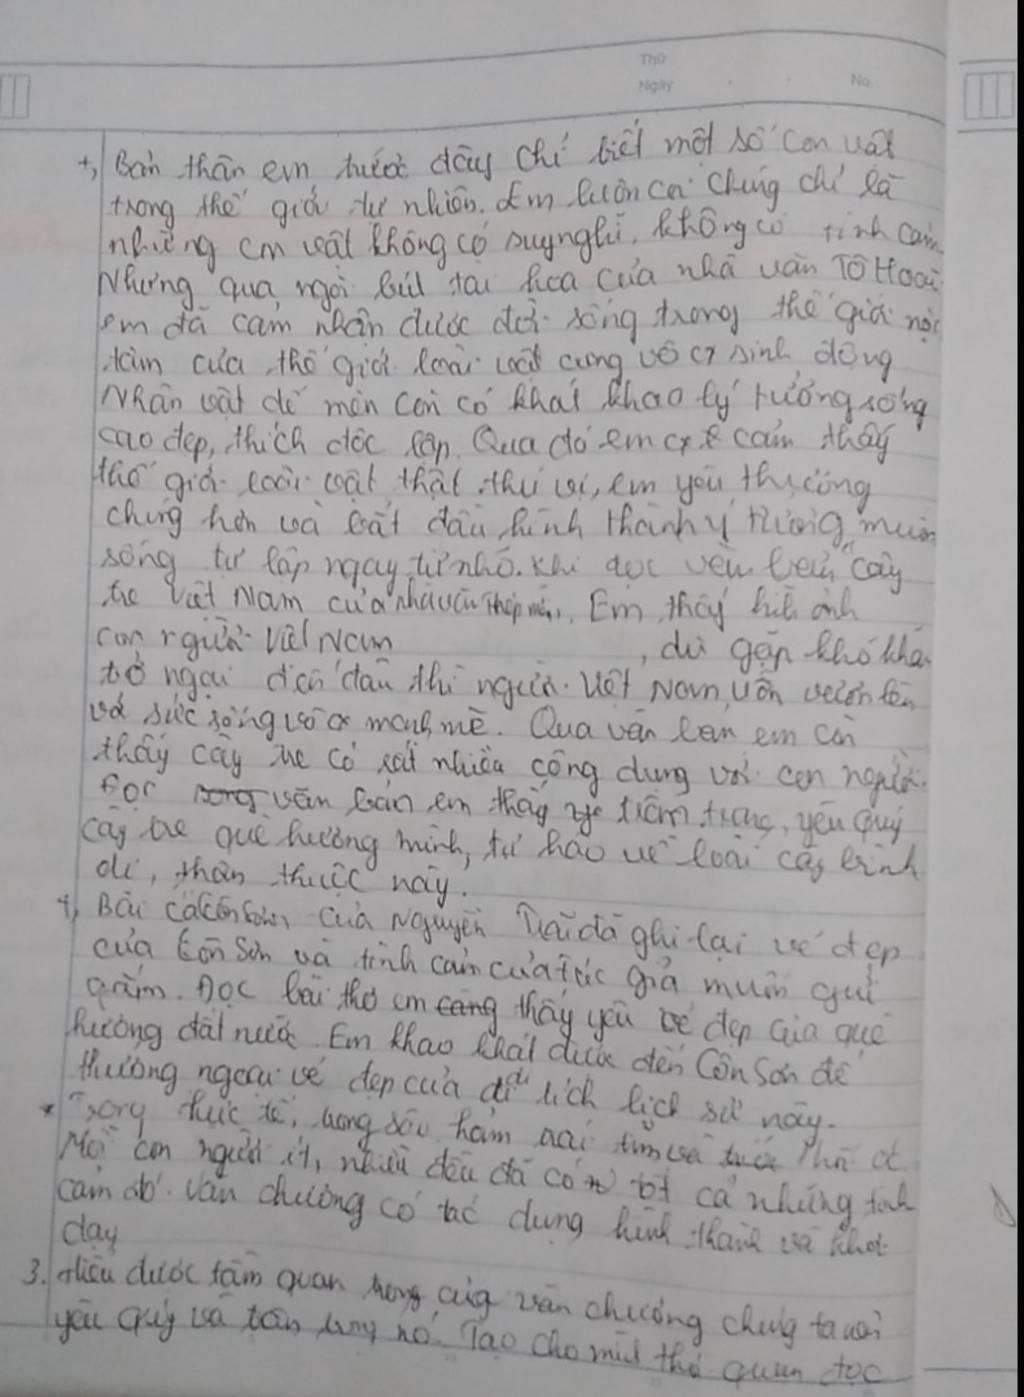 Thứ
Ngày No.
+, Bản thân em trước đây chỉ biết một số con vật
trong thế giới tự nhiên. Em luôn coi chúng chỉ là
những con vật không có suy nghĩ, không có tình cảm.
Nhưng qua ngòi bút tài hoa của nhà văn Tô Hoài
em đã cảm nhận được đời sống trong thế giới nội
tâm của thế giới loài vật cũng vô cг sinh động
Nhân vật dế mèn còn có khát khao lý tưởng sống
cao đẹp, thích độc lập. Qua đó em cảm thấy
thế giới loài vật thật thú vị, em yêu thương
chúng hơn và bắt đầu hình thành ý tưởng muốn
sống tự lập ngay từ nhỏ. Khi đọc văn bản "cây
tre Việt Nam của nhà văn Thép mới, Em thấy hình ảnh
con người Việt Nam , dù gặp khó khăn
trở ngại đến đâu thì người Việt Nam vẫn vươn lên
với sức sống vô cг mạnh mẽ. Qua văn bản em còn
thấy cây tre có rất nhiều công dụng với con người.
Đọc văn bản em thấy trân trọng, yêu quý
cây tre quê hương mình, tự hào về loài cây bình
dị, thân thuộc này.
+, Bài ca Côn Sơn, của Nguyễn Trãi đã ghi lại vẻ đẹp
của Côn Sơn và tình cảm của tác giả muốn gửi
gắm. Đọc bài thơ em càng thấy yêu vẻ đẹp của quê
hương đất nước. Em khao khát được đến Côn Sơn để
thưởng ngoạn vẻ đẹp của di tích lịch sử này.
* Trong thực tế, trong sâu
Mỗi con người ít, nhiều đều đã có tất cả những tình
cảm đó. Văn chương có tác dụng hình thành và khơi
dạy
3. Hiểu được tầm quan trọng của văn chương chúng ta
yêu quý và trân trọng nó. Tạo cho mình thói quen đọc